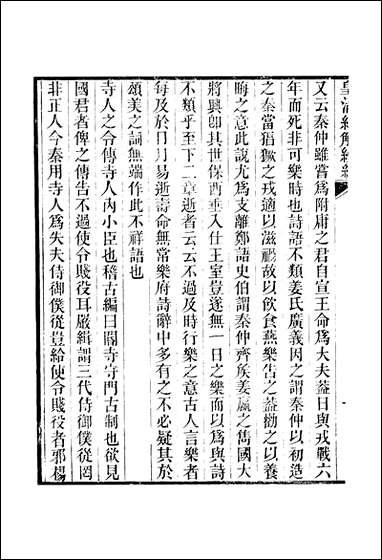 皇清經解續編
又云秦仲雖嘗爲附庸之君自宣王命爲大夫蓋日與戎戰六
年而死非可樂時也詩語不類姜氏廣義因之謂秦仲以初造
之秦當猖獗之戎適以滋禍故以飮食燕樂告之蓋勸之以養
晦之意此說尤爲支離鄭語史伯謂秦仲齊矦姜嬴之雋國大
將興卽其世保西垂入仕王室豈遂無一日之樂而以爲與詩
不類乎至下二章逝者云云不過及時行樂之意古人言樂者
每及於日月易逝壽命無常樂府詩辭中多有之不必疑其於
頌美之詞無端作此不祥語也
寺人之令傳寺人內小臣也稽古編曰閽寺守門古制也欲見
國君者俾之傳告不過使令賤役耳嚴緝謂三代侍御僕從罔
非正人今秦用寺人爲失夫侍御僕從豈給使令賤役者邪楊